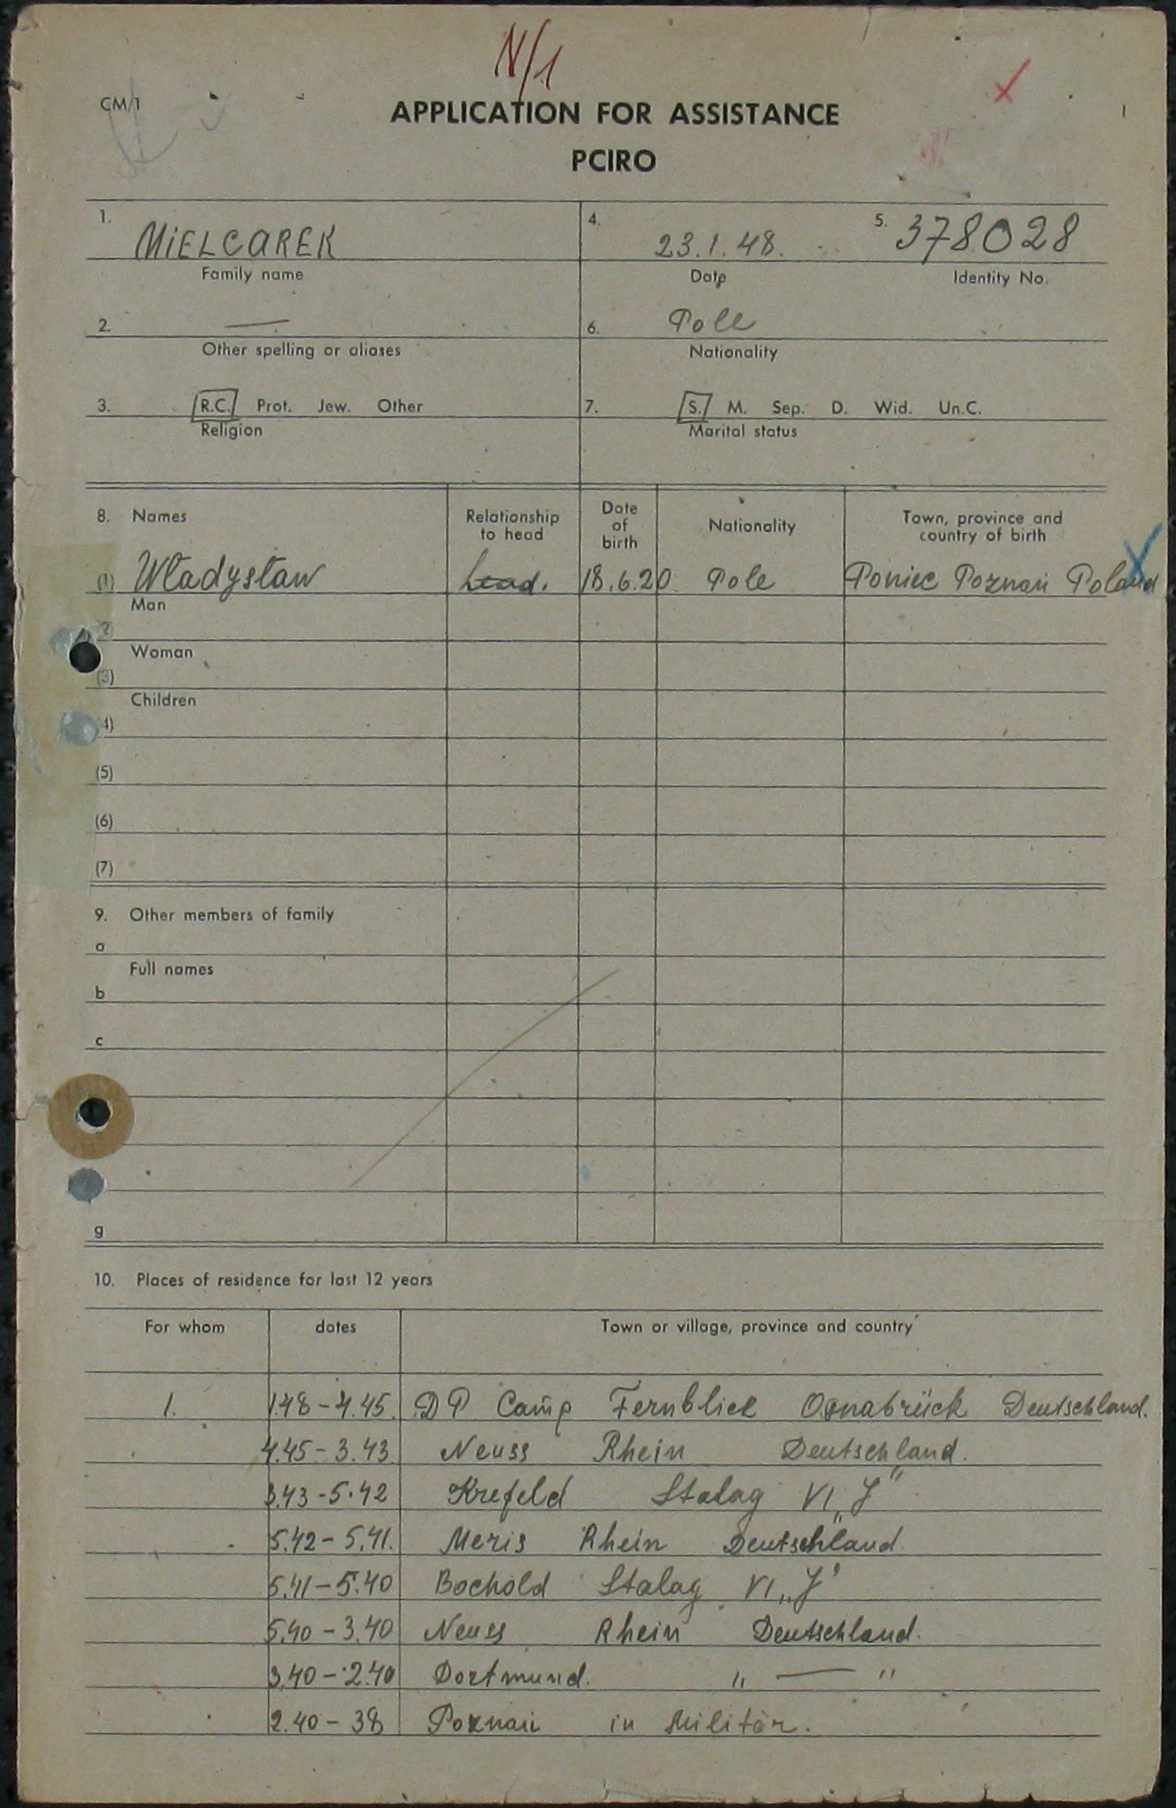 N/1
CM/1
APPLICATION FOR ASSISTANCE
PCIRO
1. MIELCAREK
Family name
4. 23.1.48.
Date
5. 378028
Identity No.
2. —
Other spelling or aliases
6. Pole
Nationality
3. R.C. Prot. Jew. Other
Religion
7. S. M. Sep. D. Wid. Un.C.
Marital status
8. Names Relationship to head Date of birth Nationality Town, province and country of birth
(1) Władysław head. 18.6.20. Pole Poniec Poznań Poland
Man
(2)
Woman
(3)
Children
(4)
(5)
(6)
(7)
9. Other members of family
a
Full names
b
c
g
10. Places of residence for last 12 years
For whom dates Town or village, province and country
1. 1.48 – 4.45. DP Camp Fernblick Osnabrück Deutschland.
4.45 – 3.43 Neuss Rhein Deutschland.
3.43 – 5.42 Krefeld Stalag VI „J"
5.42 – 5.41. Meris Rhein Deutschland.
5.41 – 5.40 Bochold Stalag VI „J"
5.40 – 3.40 Neuss Rhein Deutschland.
3.40 – 2.40 Dortmund. " — "
2.40 – 38 Poznań in Militär.